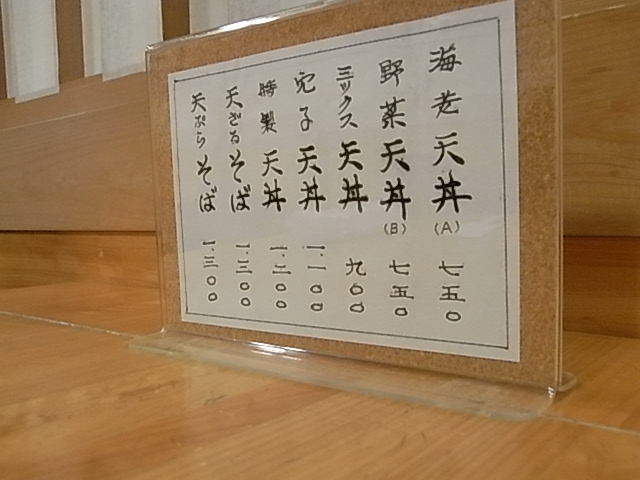 海老天丼(A) 七五〇
野菜天丼(B) 七五〇
ミックス天丼 九〇〇
穴子天丼 一.一〇〇
特製天丼 一.二〇〇
天ざるそば 一.三〇〇
天ぷらそば 一.三〇〇